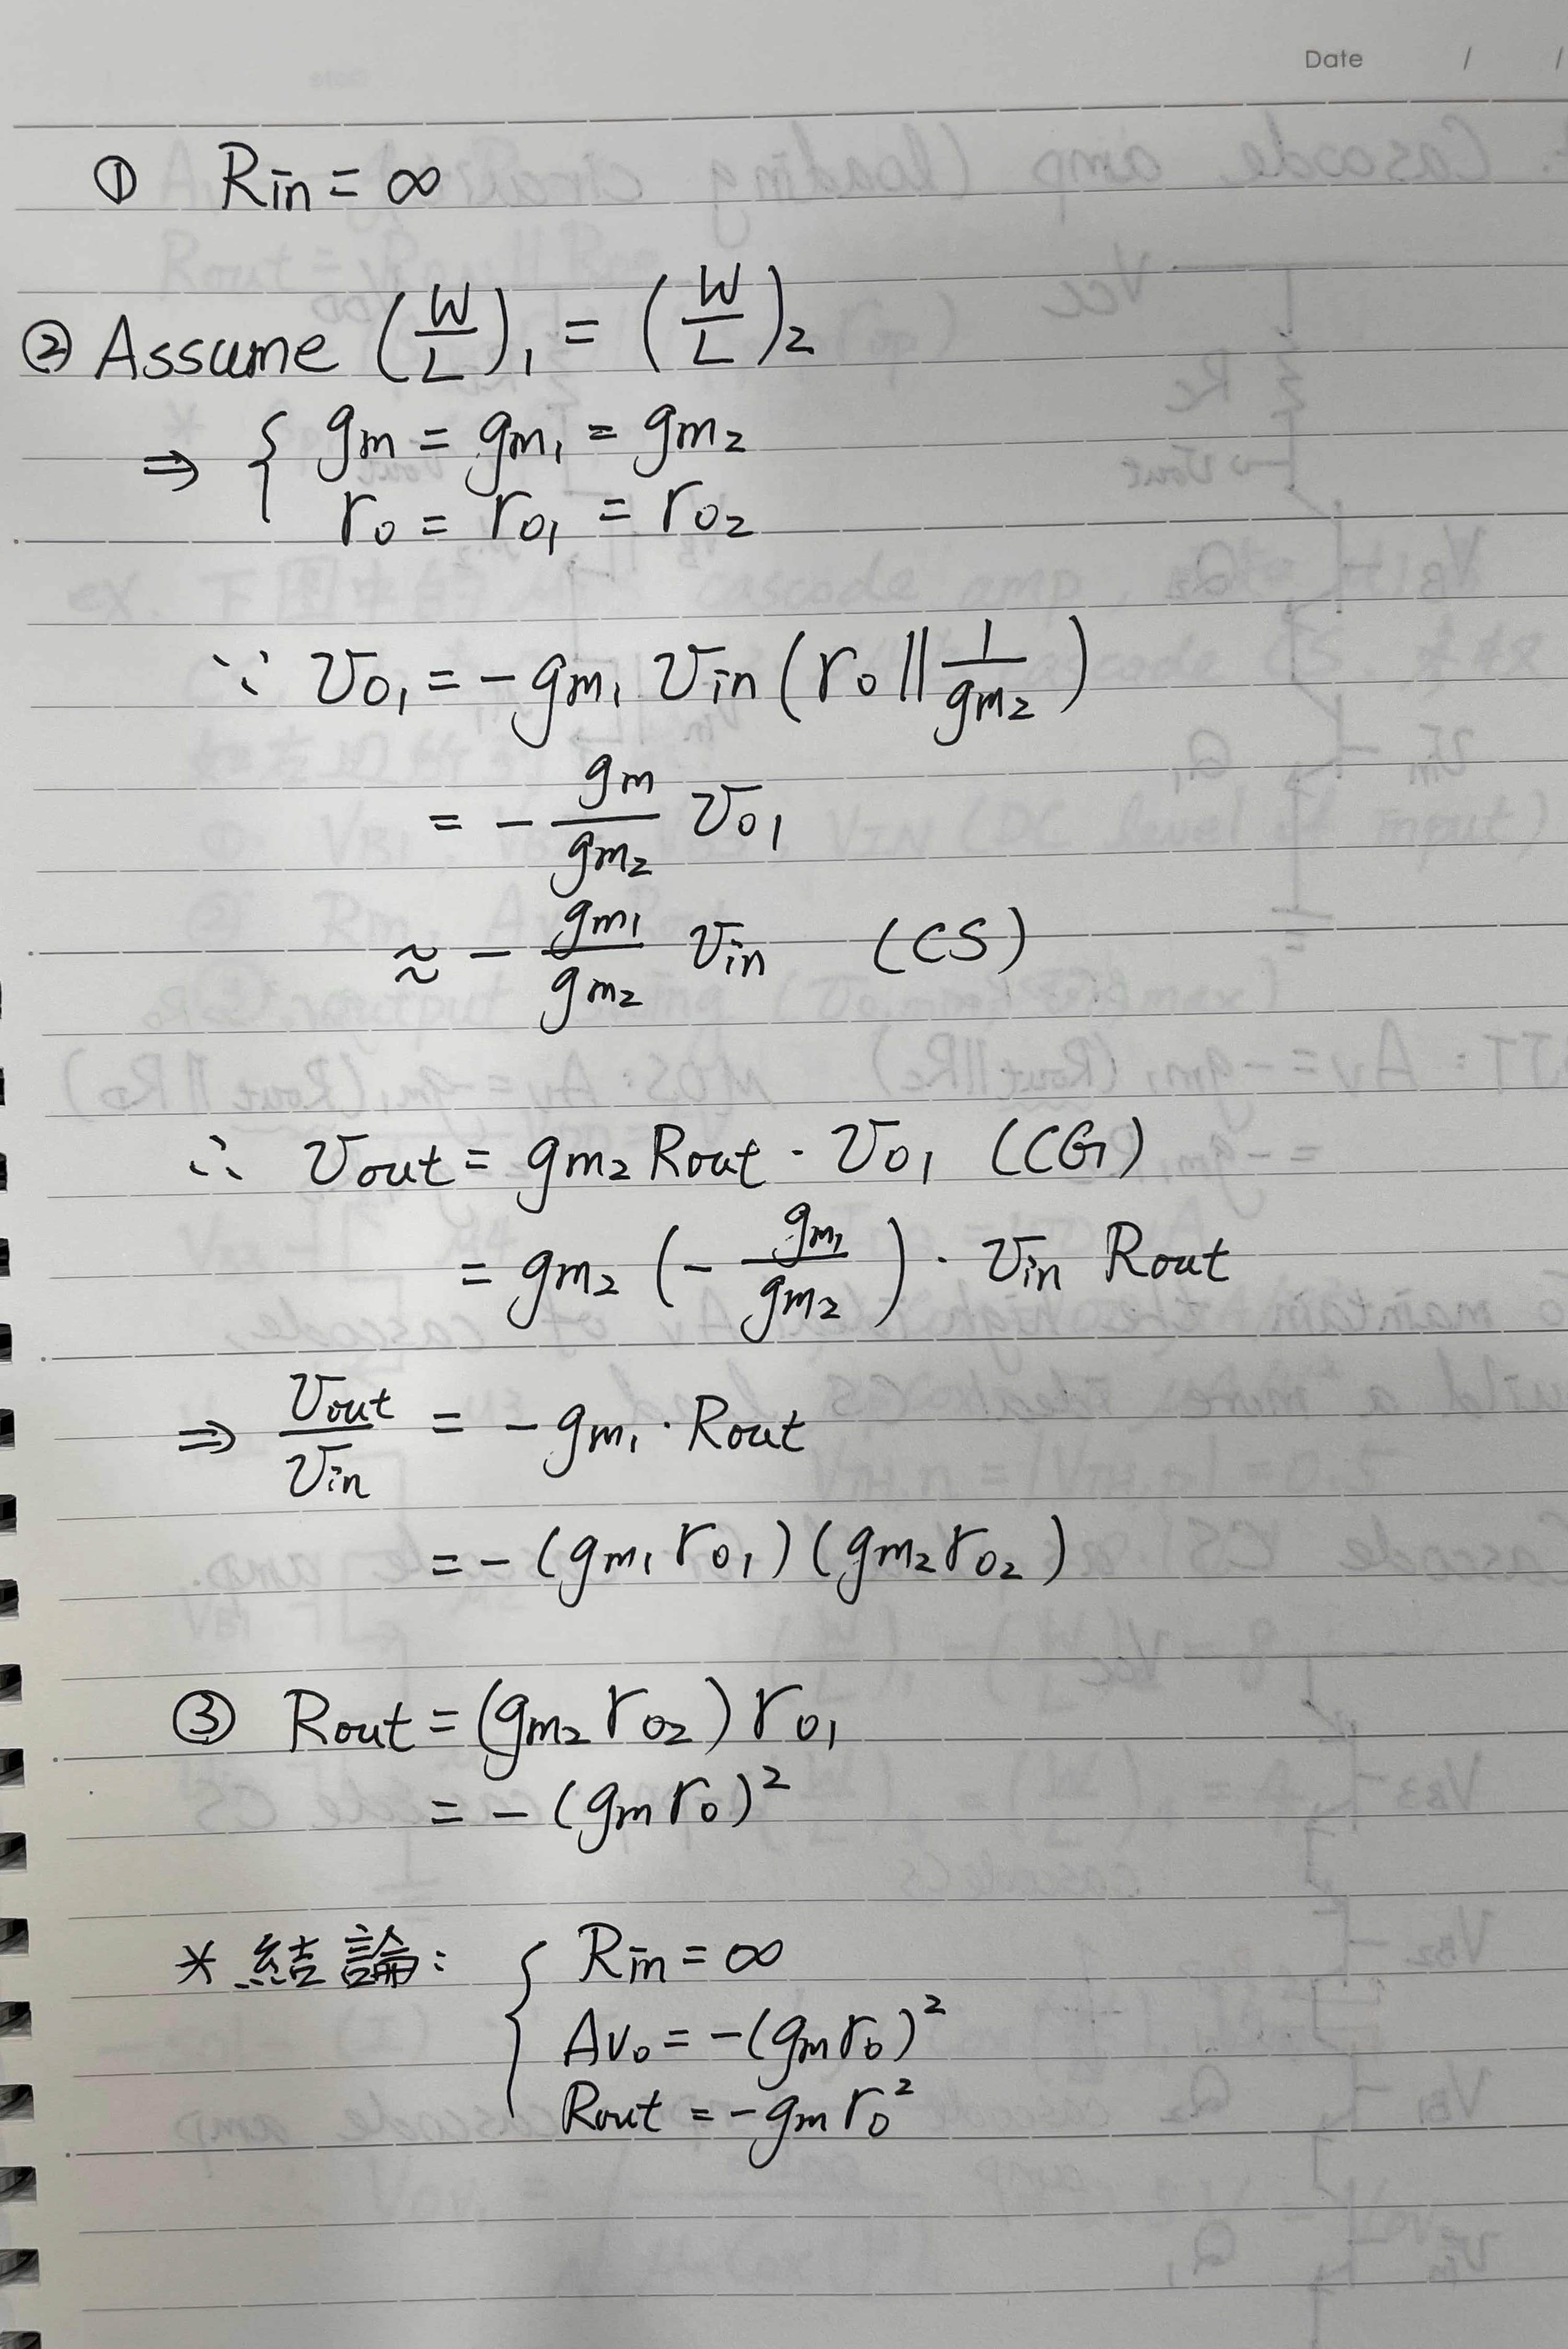 Date / /
① Rin = ∞
② Assume (W/L)₁ = (W/L)₂
⇒ { gm = gm₁ = gm₂
r₀ = r₀₁ = r₀₂
∵ v₀₁ = -gm₁ vin (r₀ || 1/gm₂)
= - gm/gm₂ v₀₁
≈ - gm₁/gm₂ vin (CS)
∴ vout = gm₂ Rout · v₀₁ (CG)
= gm₂ (- gm₁/gm₂) · vin Rout
⇒ vout/vin = - gm₁ · Rout
= - (gm₁ r₀₁) (gm₂ r₀₂)
③ Rout = (gm₂ r₀₂) r₀₁
= - (gm r₀)²
* 結論: { Rin = ∞
Av₀ = - (gm r₀)²
Rout = - gm r₀²